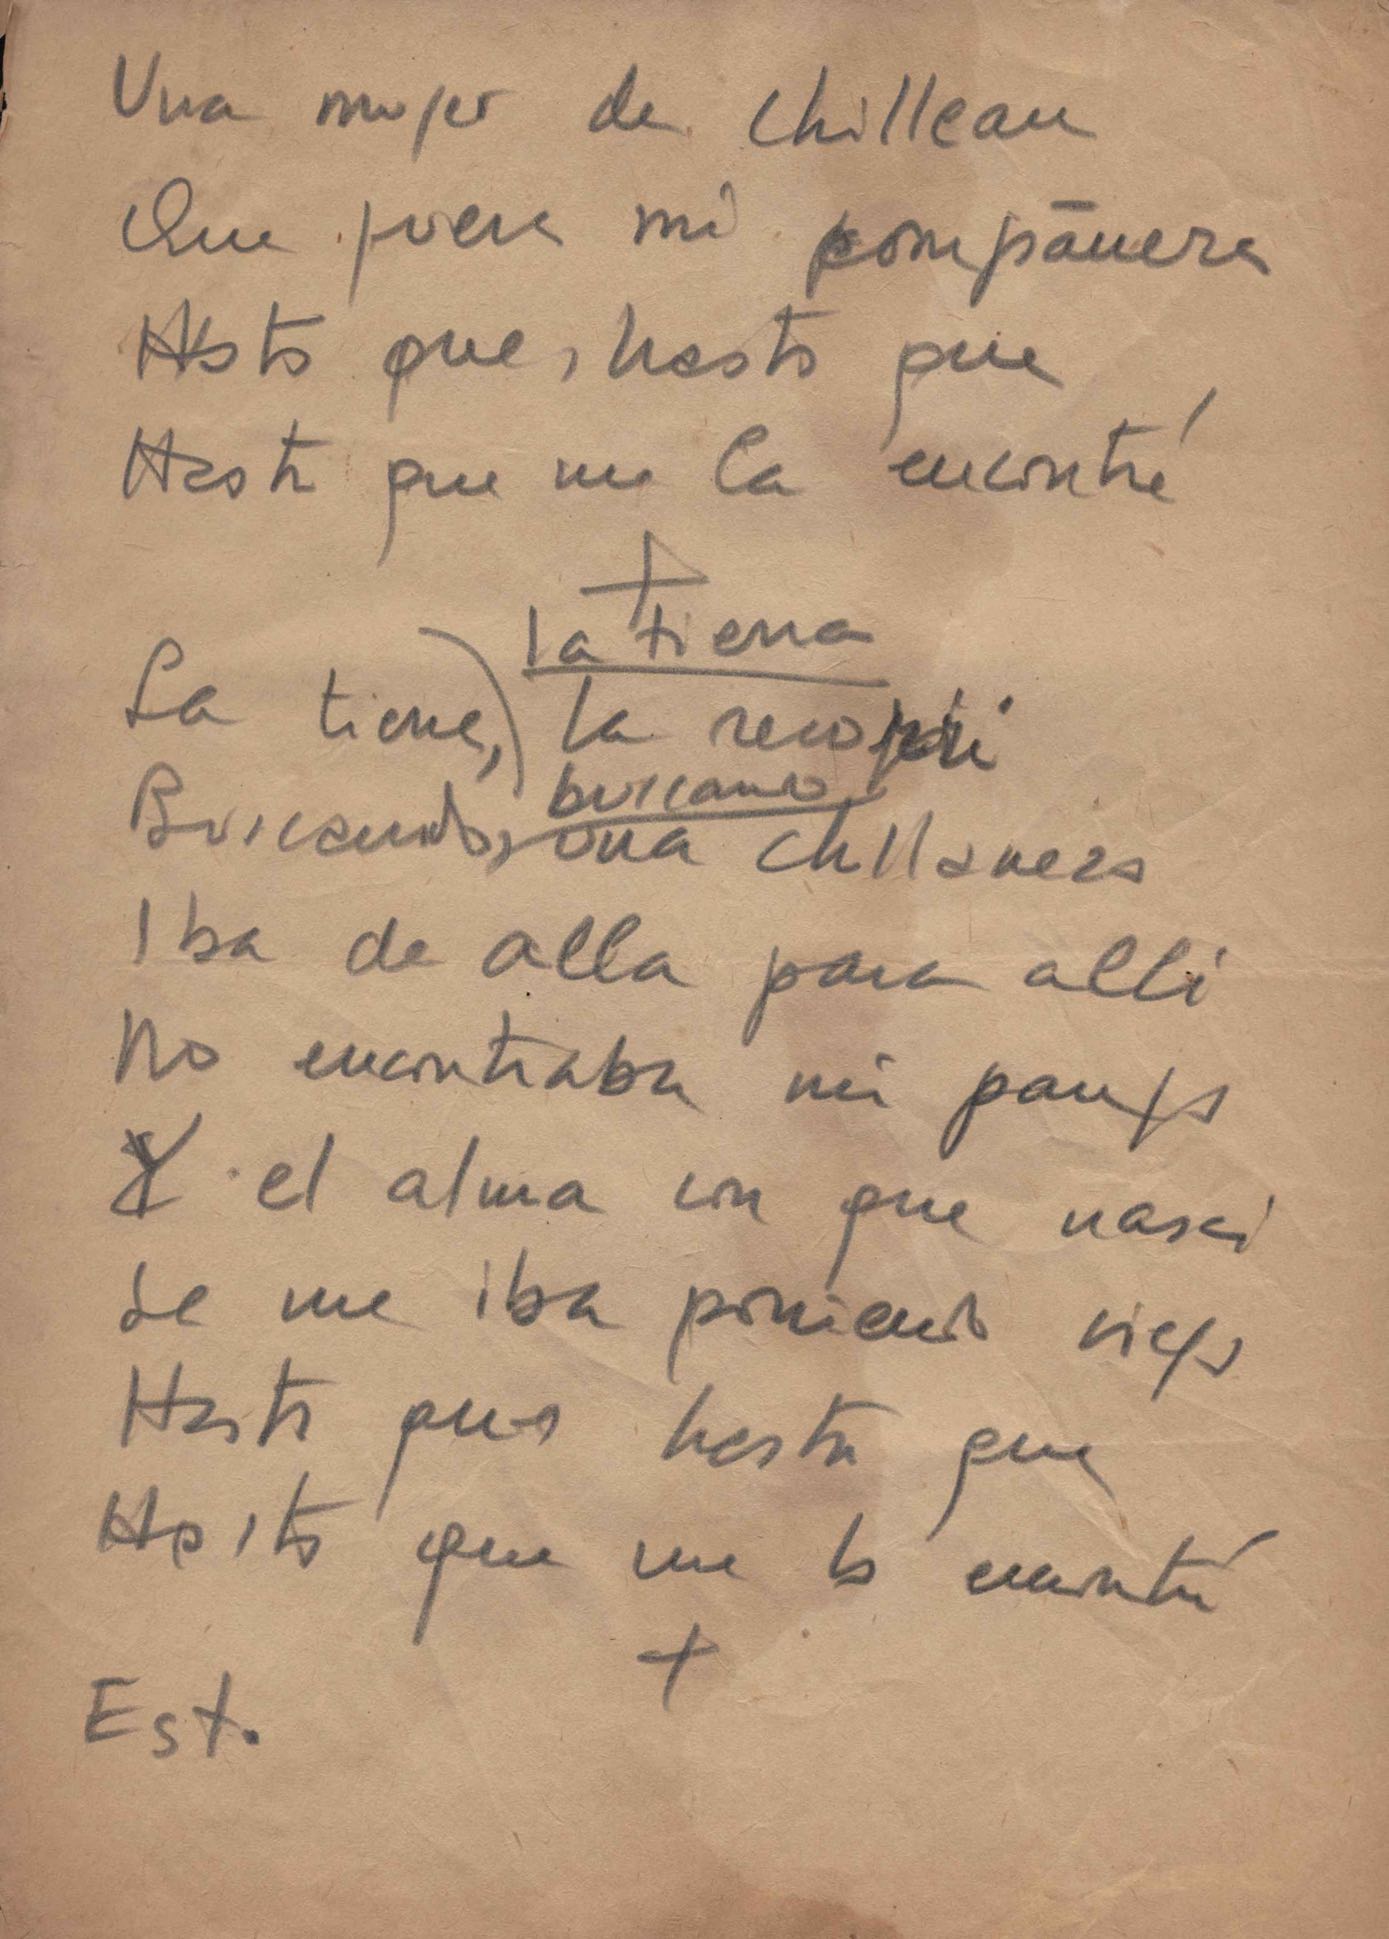 Una mujer de Chillean
Que fuera mi compañera
Hasta que, hasta que
Hasta que me la encontré
la tierra
La tierra, la recojerí
buscando
Buscando, una chillanera
Iba de alla para alli
No encontraba mi pareja
Y el alma con que nasci
Se me iba poniendo vieja
Hasta que hasta que
Hasta que me la encontré
+
Est.